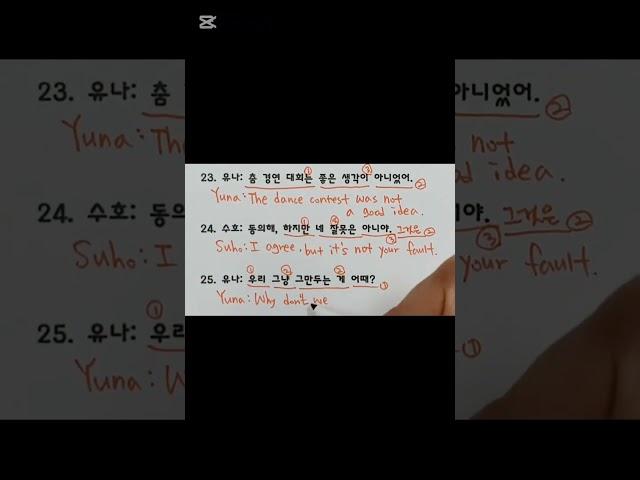 23. 유나: 춤 경연 대회는 좋은 생각이 아니었어.
Yuna: The dance contest was not
a good idea.
24. 수호: 동의해, 하지만 네 잘못은 아니야. 그것은
Suho: I agree, but it's not your fault.
25. 유나: 우리 그냥 그만두는 게 어때?
Yuna: Why don't we